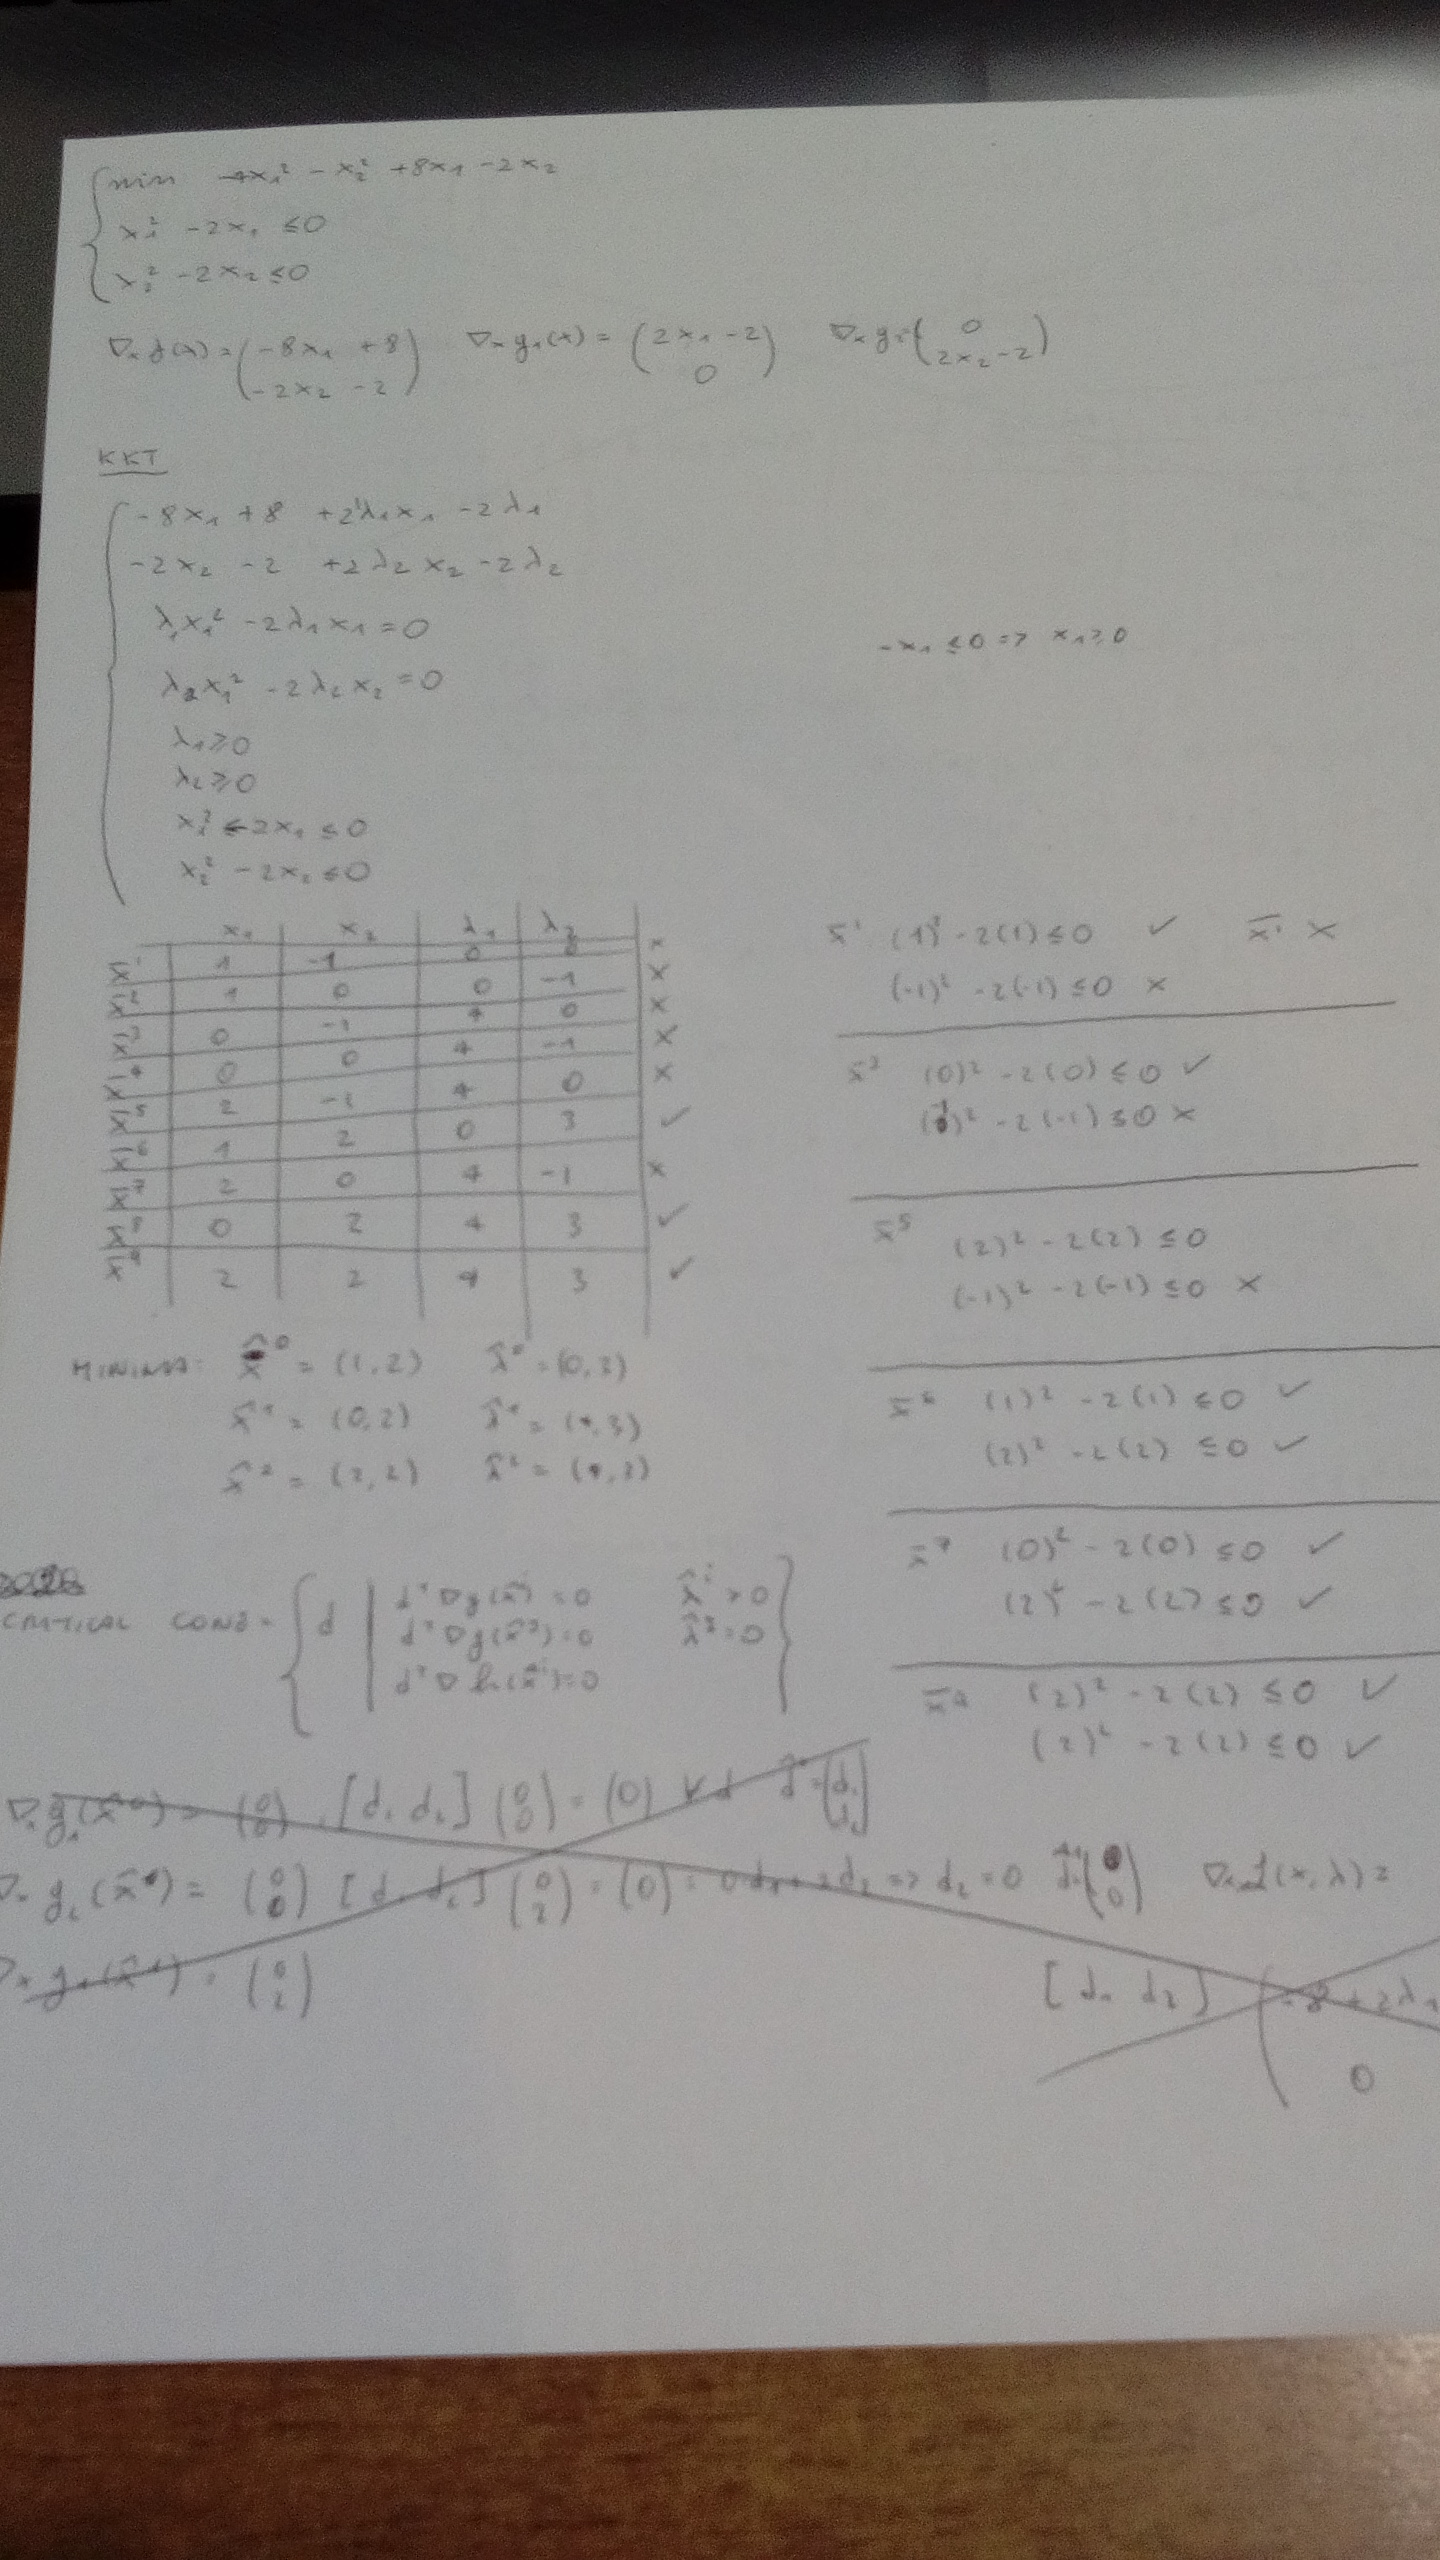 min -4x₁² - x₂² + 8x₁ - 2x₂
x₁² - 2x₁ ≤ 0
x₂² - 2x₂ ≤ 0
∇ₓf(x) = (-8x₁ + 8, -2x₂ - 2) ∇ₓg₁(x) = (2x₁ - 2, 0) ∇ₓg₂ = (0, 2x₂ - 2)
KKT
-8x₁ + 8 + 2λ₁x₁ - 2λ₁
-2x₂ - 2 + 2λ₂x₂ - 2λ₂
λ₁x₁² - 2λ₁x₁ = 0
-x₁ ≤ 0 => x₁ ≥ 0
λ₂x₁² - 2λ₂x₂ = 0
λ₁ ≥ 0
λ₂ ≥ 0
x₁² - 2x₁ ≤ 0
x₂² - 2x₂ ≤ 0
x₁ x₂ λ₁ λ₂
x̄¹ 1 -1 0 0 x
x̄² 1 0 0 -1 x
x̄³ 0 -1 4 0 x
x̄⁴ 0 0 4 -1 x
x̄⁵ 2 -1 4 0 x
x̄⁶ 1 2 0 3 ✓
x̄⁷ 2 0 4 -1 x
x̄⁸ 0 2 4 3 ✓
x̄⁹ 2 2 4 3 ✓
x̄¹ (1)² - 2(1) ≤ 0 ✓ x̄¹ x
(-1)² - 2(-1) ≤ 0 x
x̄³ (0)² - 2(0) ≤ 0 ✓
( )² - 2(-1) ≤ 0 x
x̄⁵ (2)² - 2(2) ≤ 0
(-1)² - 2(-1) ≤ 0 x
x̄⁶ (1)² - 2(1) ≤ 0 ✓
(2)² - 2(2) ≤ 0 ✓
(0)² - 2(0) ≤ 0 ✓
(2)² - 2(2) ≤ 0 ✓
(2)² - 2(2) ≤ 0 ✓
(2)² - 2(2) ≤ 0 ✓
MINIMA: x̂⁰ = (1, 2) λ̂⁰ = (0, 3)
x̂¹ = (0, 2) λ̂¹ = (4, 3)
x̂² = (2, 2) λ̂² = (4, 3)
CRITICAL CONE = { d | dᵀ∇g(x̂ⁱ) = 0 λ̂ⁱ > 0
dᵀ∇g( ) = 0 = 0
dᵀ∇h(x̂ⁱ) = 0 }
∇ₓg₁(x̂⁰) = (0, 0) [d₁ d₂] (0, 0) = (0) ∀d = (d₁, d₂)
∇ₓg₂(x̂⁰) = [d₁ d₂] (0, 2) = (0) = 0d₁ + 2d₂ => d₂ = 0
∇ₓg₁(x̂¹) = (0, 2)
[d₁ d₂] (-8 + 2λ₁
0